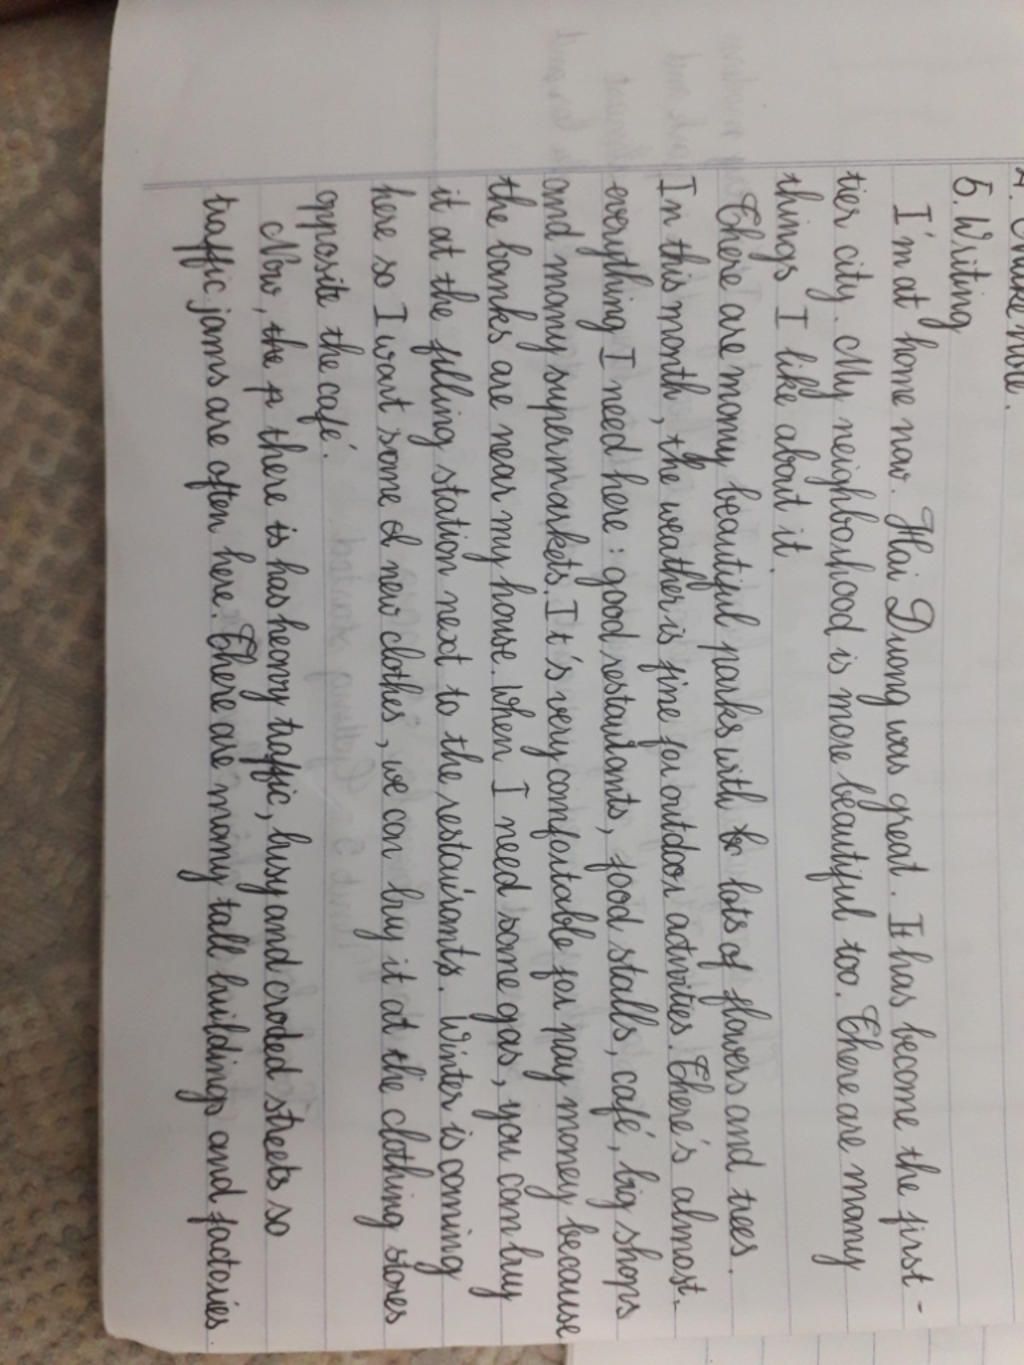 5. Writing
I'm at home now. Hai Duong was great. It has become the first-
tier city. My neighborhood is more beautiful too. There are many
things I like about it.
There are many beautiful parks with lots of flowers and trees.
In this month, the weather is fine for outdoor activities. There's almost
everything I need here: good restautants, food stalls, café, big shops
and many supermarkets. It's very comfortable for pay money because
the banks are near my house. When I need some gas, you can buy
it at the filling station next to the restaurants. Winter is coming
here so I want some new clothes, we can buy it at the clothing stores
opposite the café.
Now, there is has heavy traffic, busy and croded streets so
traffic jams are often here. There are many tall buildings and factories.